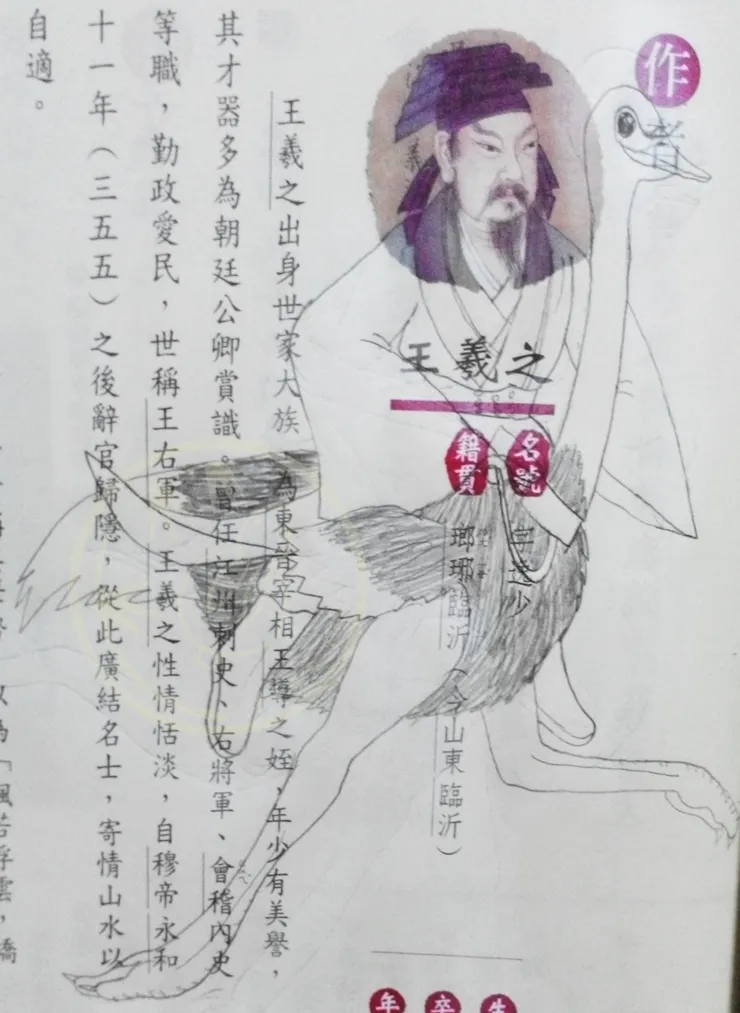 作者
王羲之
名號
字逸少
籍貫
瑯琊臨沂（今山東臨沂）
生卒年
王羲之出身世家大族，為東晉宰相王導之姪，年少有美譽，
其才器多為朝廷公卿賞識。曾任江州刺史、右將軍、會稽內史
等職，勤政愛民，世稱王右軍。王羲之性情恬淡，自穆帝永和
十一年（三五五）之後辭官歸隱，從此廣結名士，寄情山水以
自適。
以為「飄若浮雲，矯